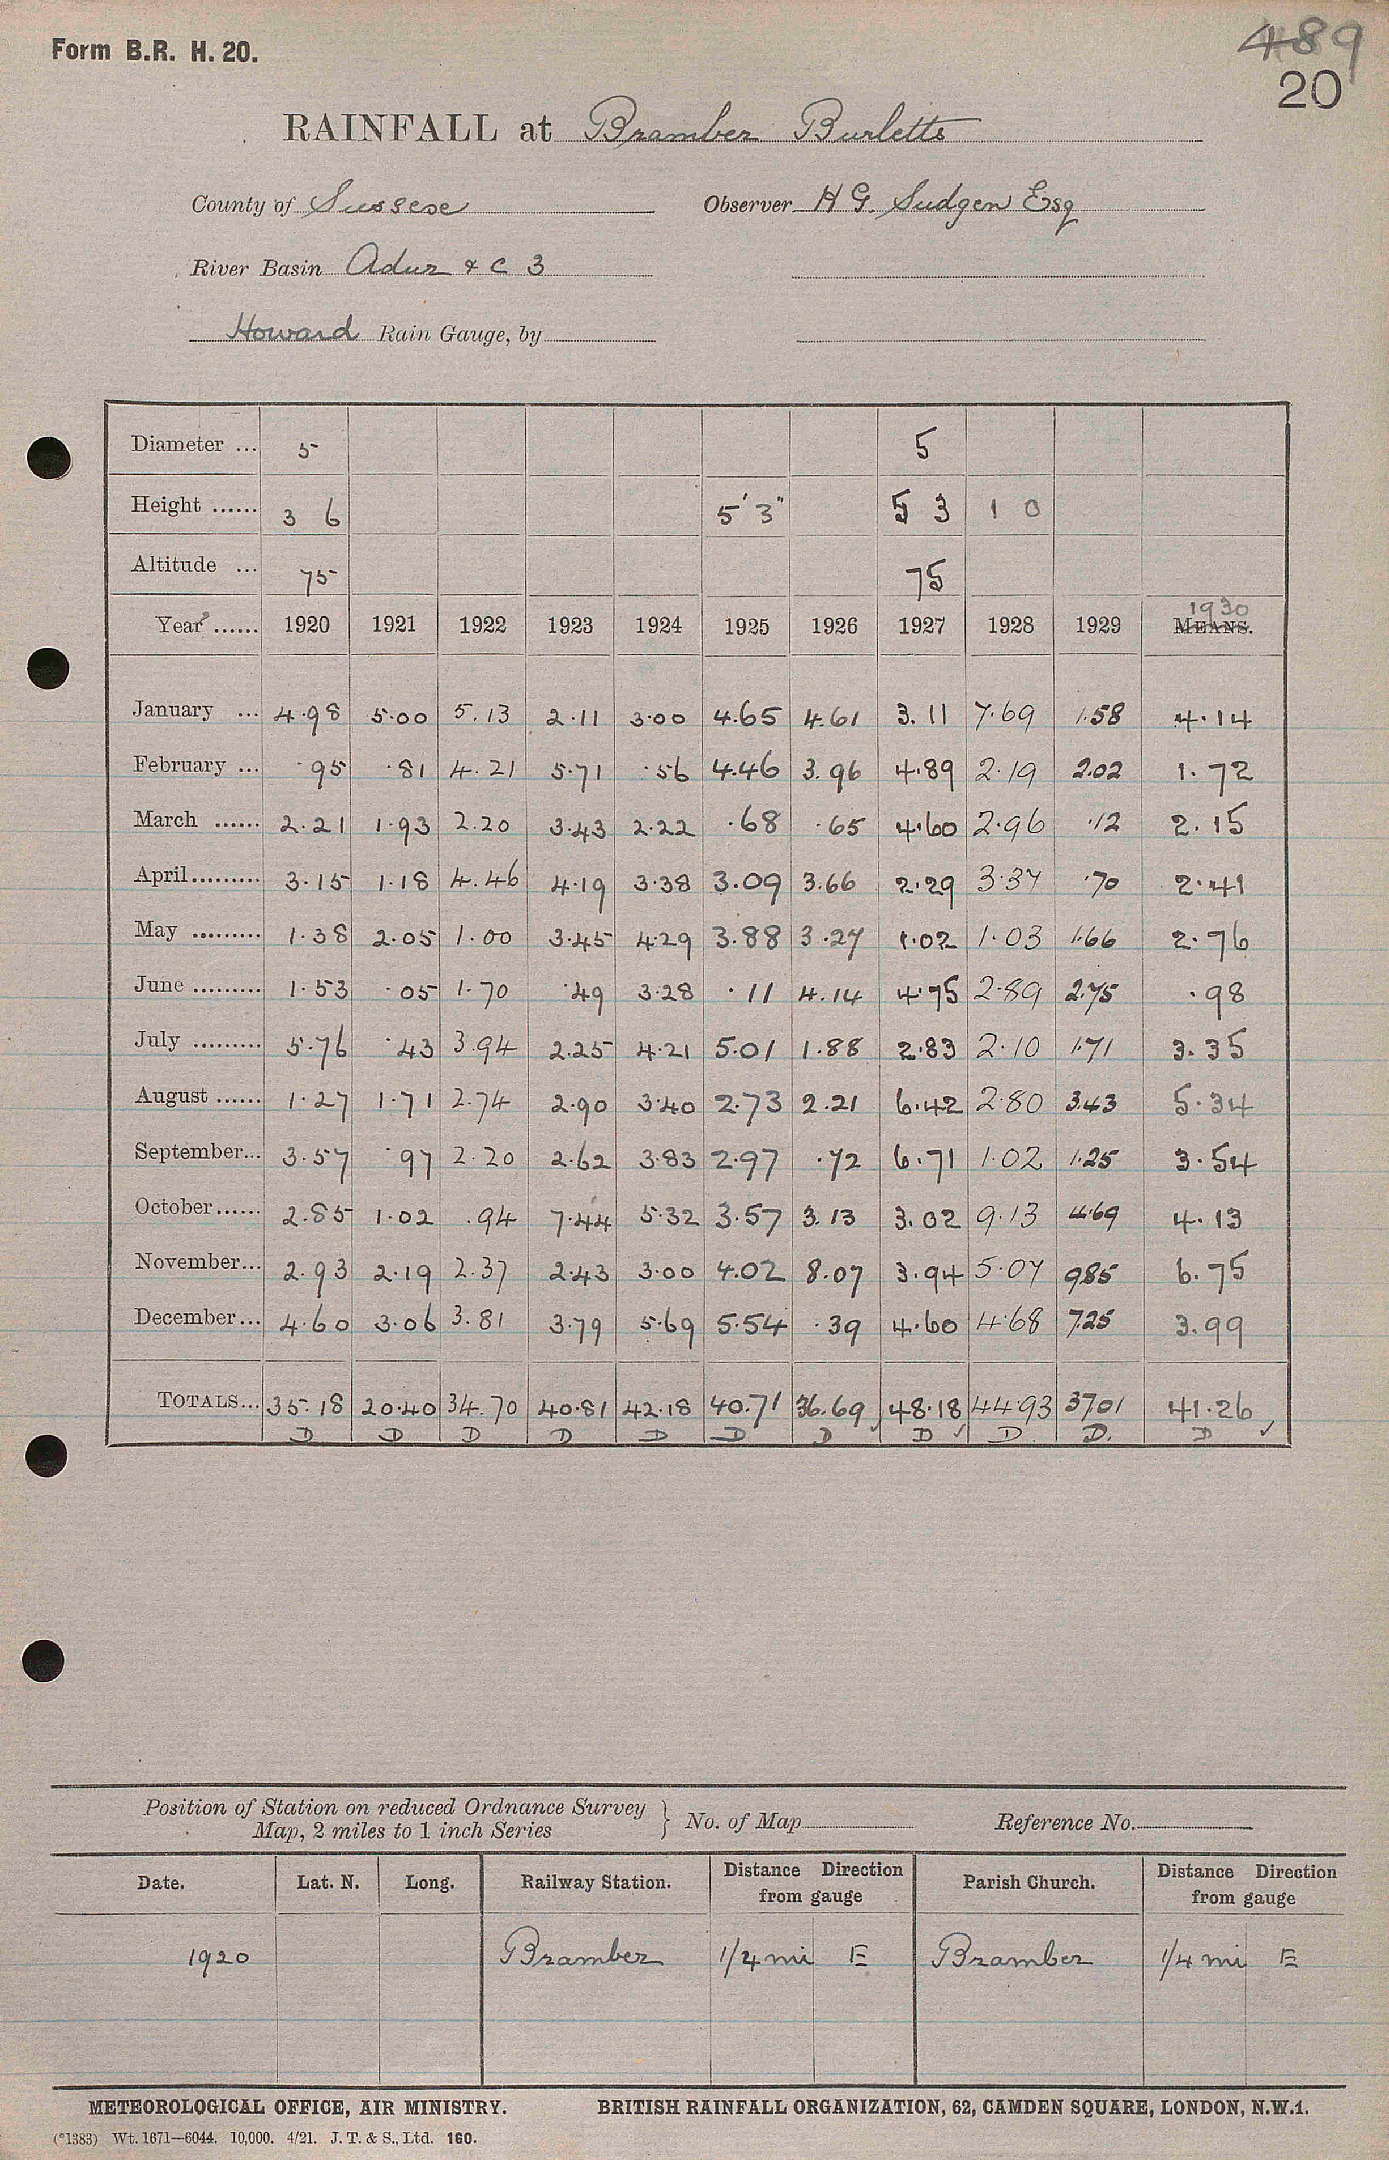 Form B.R. H. 20.
489
20
RAINFALL at Bramber Burletts
County of Sussex Observer H G. Sudgen Esq
River Basin Adur & C 3
Howard Rain Gauge, by
Diameter ... 5 5
Height ...... 3 6 5' 3" 5 3 1 0
Altitude ... 75 75
1930
Year ...... 1920 1921 1922 1923 1924 1925 1926 1927 1928 1929 MEANS.
January ... 4.98 5.00 5.13 2.11 3.00 4.65 4.61 3.11 7.69 1.58 4.14
February ... .95 .81 4.21 5.71 .56 4.46 3.96 4.89 2.19 2.02 1.72
March ...... 2.21 1.93 2.20 3.43 2.22 .68 .65 4.60 2.96 .12 2.15
April......... 3.15 1.18 4.46 4.19 3.38 3.09 3.66 2.29 3.37 .70 2.41
May ......... 1.38 2.05 1.00 3.45 4.29 3.88 3.27 1.02 1.03 1.66 2.76
June ......... 1.53 .05 1.70 .49 3.28 .11 4.14 4.75 2.89 2.75 .98
July ......... 5.76 .43 3.94 2.25 4.21 5.01 1.88 2.83 2.10 1.71 3.35
August ...... 1.27 1.71 2.74 2.90 3.40 2.73 2.21 6.42 2.80 3.43 5.34
September... 3.57 .97 2.20 2.62 3.83 2.97 .72 6.71 1.02 1.25 3.54
October...... 2.85 1.02 .94 7.44 5.32 3.57 3.13 3.02 9.13 4.69 4.13
November... 2.93 2.19 2.37 2.43 3.00 4.02 8.07 3.94 5.07 9.85 6.75
December... 4.60 3.06 3.81 3.79 5.69 5.54 .39 4.60 4.68 7.25 3.99
TOTALS... 35.18 20.40 34.70 40.81 42.18 40.71 36.69 48.18 44.93 37.01 41.26
D D D D D D D D D D. D
Position of Station on reduced Ordnance Survey
Map, 2 miles to 1 inch Series } No. of Map Reference No.
Date. Lat. N. Long. Railway Station. Distance Direction from gauge Parish Church. Distance Direction from gauge
1920 Bramber 1/4 mi E Bramber 1/4 mi E
METEOROLOGICAL OFFICE, AIR MINISTRY. BRITISH RAINFALL ORGANIZATION, 62, CAMDEN SQUARE, LONDON, N.W.1.
(*1383) Wt. 1671—6044. 10,000. 4/21. J. T. & S., Ltd. 160.